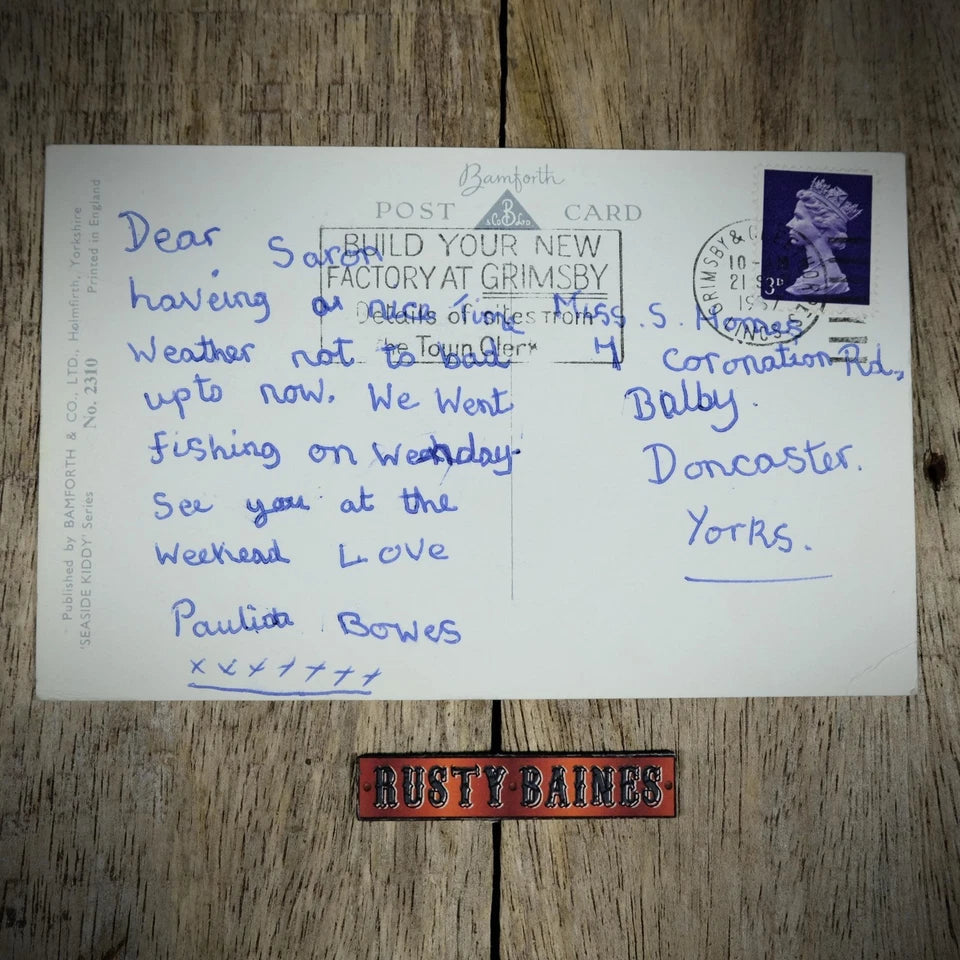 Bamforth
POST CARD
B
& Co Ltd
Published by BAMFORTH & CO., LTD., Holmfirth, Yorkshire
'SEASIDE KIDDY' Series
No. 2310
Printed in England
BUILD YOUR NEW
FACTORY AT GRIMSBY
Details of sites from
the Town Clerk
GRIMSBY &
10 -
21
3D
Dear Saron
haveing a nice time
Weather not to bad
upto now. We Went
fishing on
See you at the
Weekend Love
Bowes
Miss. S.
Coronation Rd.,
Balby.
Doncaster.
Yorks.
RUSTY BAINES